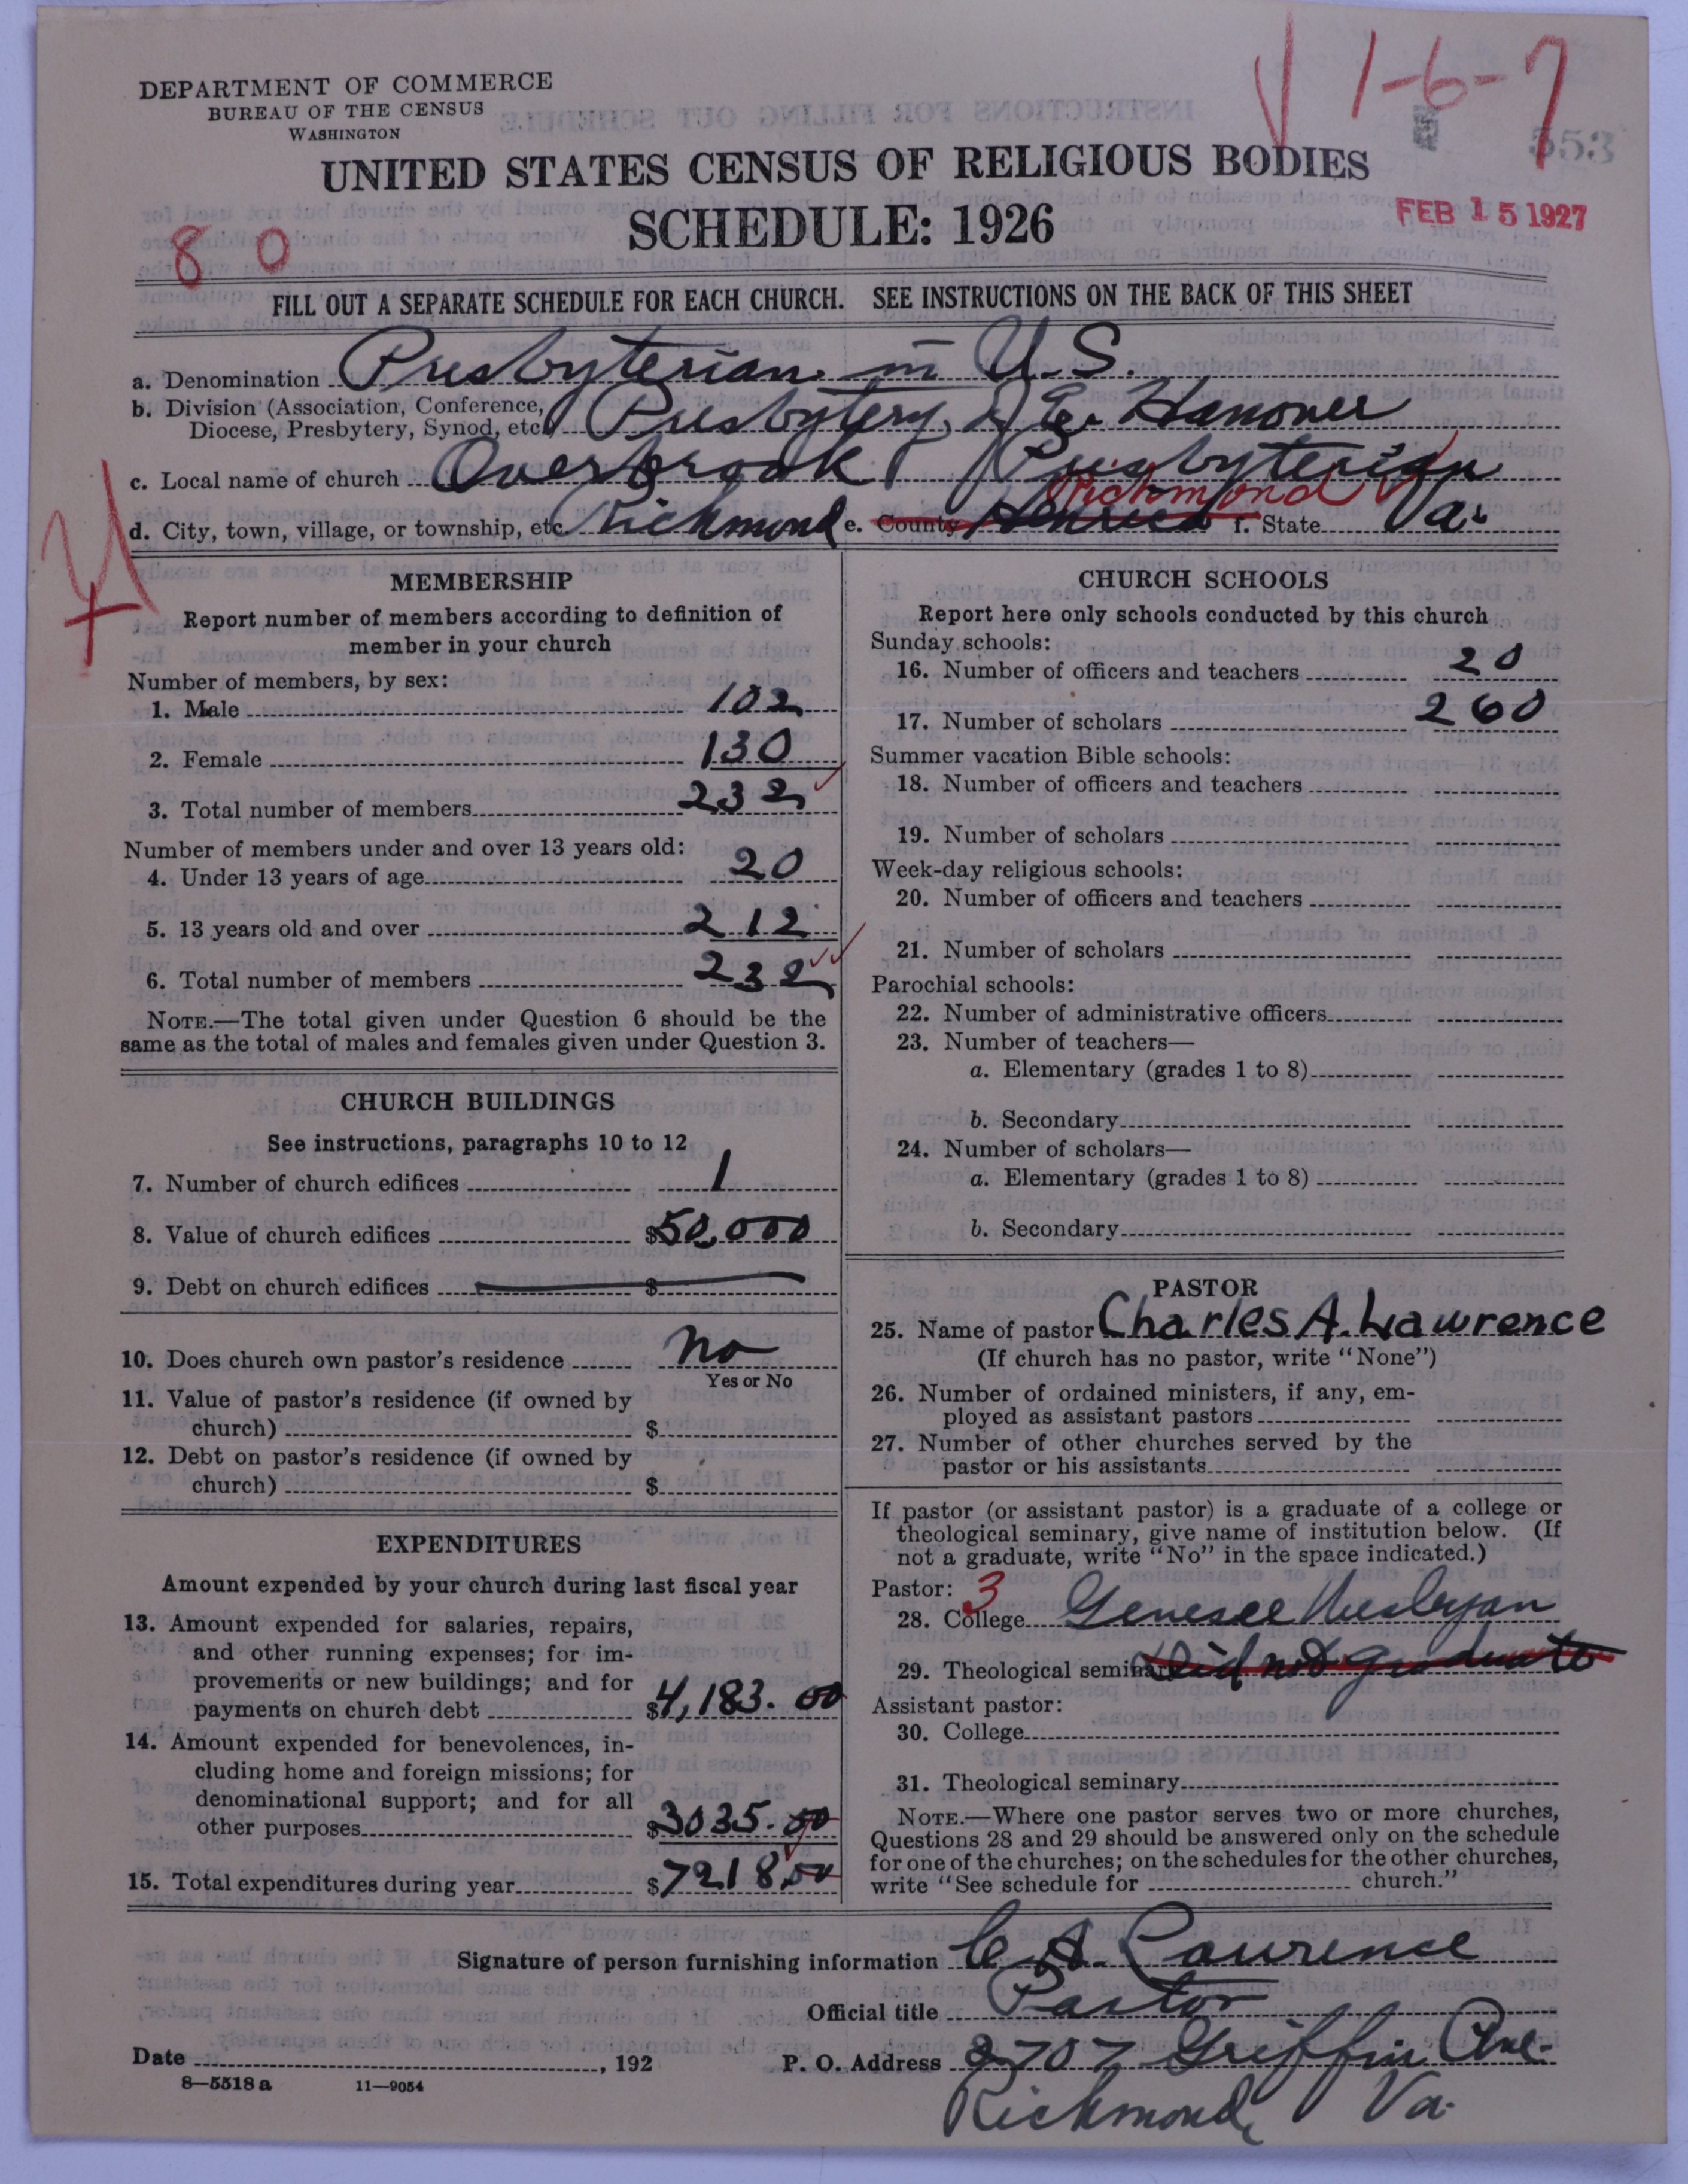 DEPARTMENT OF COMMERCE
BUREAU OF THE CENSUS
WASHINGTON
1-6-7
553
UNITED STATES CENSUS OF RELIGIOUS BODIES
SCHEDULE: 1926
FEB 15 1927
8 0
FILL OUT A SEPARATE SCHEDULE FOR EACH CHURCH. SEE INSTRUCTIONS ON THE BACK OF THIS SHEET
a. Denomination Presbyterian in U.S.
b. Division (Association, Conference, Diocese, Presbytery, Synod, etc.) Presbytery of E. Hanover
c. Local name of church Overbrook Presbyterian
Richmond
d. City, town, village, or township, etc. Richmond e. County Henrico f. State Va.
MEMBERSHIP
Report number of members according to definition of
member in your church
Number of members, by sex:
1. Male 102
2. Female 130
3. Total number of members 232
Number of members under and over 13 years old:
4. Under 13 years of age 20
5. 13 years old and over 212
6. Total number of members 232
NOTE.—The total given under Question 6 should be the
same as the total of males and females given under Question 3.
CHURCH BUILDINGS
See instructions, paragraphs 10 to 12
7. Number of church edifices 1
8. Value of church edifices $50,000
9. Debt on church edifices $
10. Does church own pastor's residence no
Yes or No
11. Value of pastor's residence (if owned by
church) $
12. Debt on pastor's residence (if owned by
church) $
EXPENDITURES
Amount expended by your church during last fiscal year
13. Amount expended for salaries, repairs,
and other running expenses; for im-
provements or new buildings; and for
payments on church debt $4,183.00
14. Amount expended for benevolences, in-
cluding home and foreign missions; for
denominational support; and for all
other purposes $3035.00
15. Total expenditures during year $7218.00
CHURCH SCHOOLS
Report here only schools conducted by this church
Sunday schools:
16. Number of officers and teachers 20
17. Number of scholars 260
Summer vacation Bible schools:
18. Number of officers and teachers
19. Number of scholars
Week-day religious schools:
20. Number of officers and teachers
21. Number of scholars
Parochial schools:
22. Number of administrative officers
23. Number of teachers—
a. Elementary (grades 1 to 8)
b. Secondary
24. Number of scholars—
a. Elementary (grades 1 to 8)
b. Secondary
PASTOR
25. Name of pastor Charles A. Lawrence
(If church has no pastor, write "None")
26. Number of ordained ministers, if any, em-
ployed as assistant pastors
27. Number of other churches served by the
pastor or his assistants
If pastor (or assistant pastor) is a graduate of a college or
theological seminary, give name of institution below. (If
not a graduate, write "No" in the space indicated.)
Pastor: 3
28. College Genesee Wesleyan
29. Theological seminary did not graduate
Assistant pastor:
30. College
31. Theological seminary
NOTE.—Where one pastor serves two or more churches,
Questions 28 and 29 should be answered only on the schedule
for one of the churches; on the schedules for the other churches,
write "See schedule for church."
Signature of person furnishing information C. A. Lawrence
Official title Pastor
Date , 192 P. O. Address 2707 Griffin Ave.
8—5518 a 11—9054
Richmond, Va.